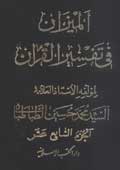 الميزان
في تفسير القرآن
لمؤلفه الأستاذ العلامة
السيد محمد حسين الطباطبائي
الجزء السابع عشر
دار الكتب الإسلامية